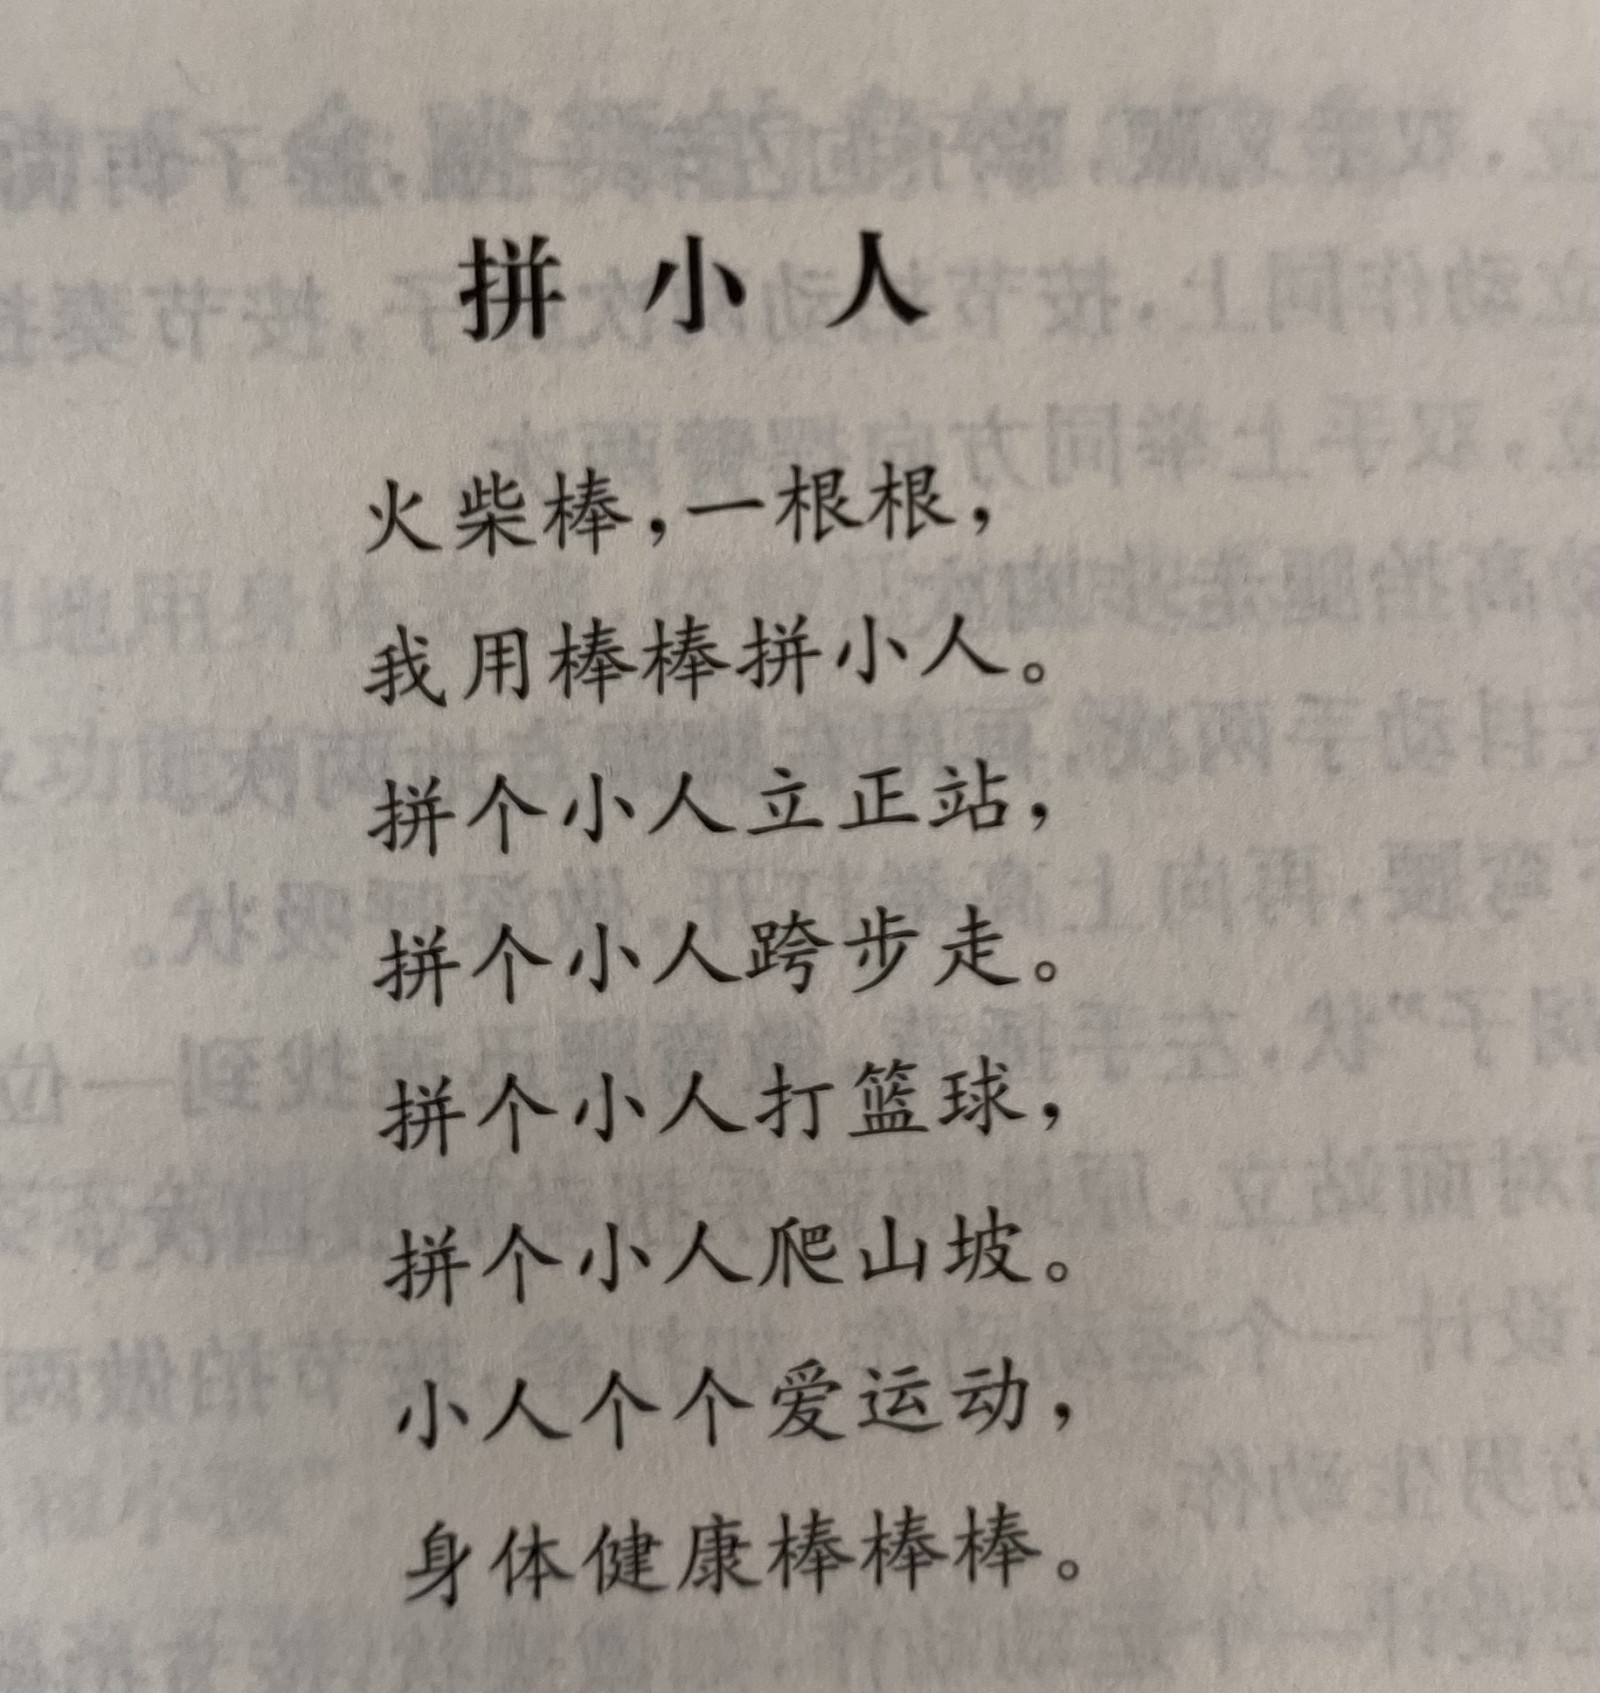 拼小人
火柴棒，一根根，
我用棒棒拼小人。
拼个小人立正站，
拼个小人跨步走。
拼个小人打篮球，
拼个小人爬山坡。
小人个个爱运动，
身体健康棒棒棒。